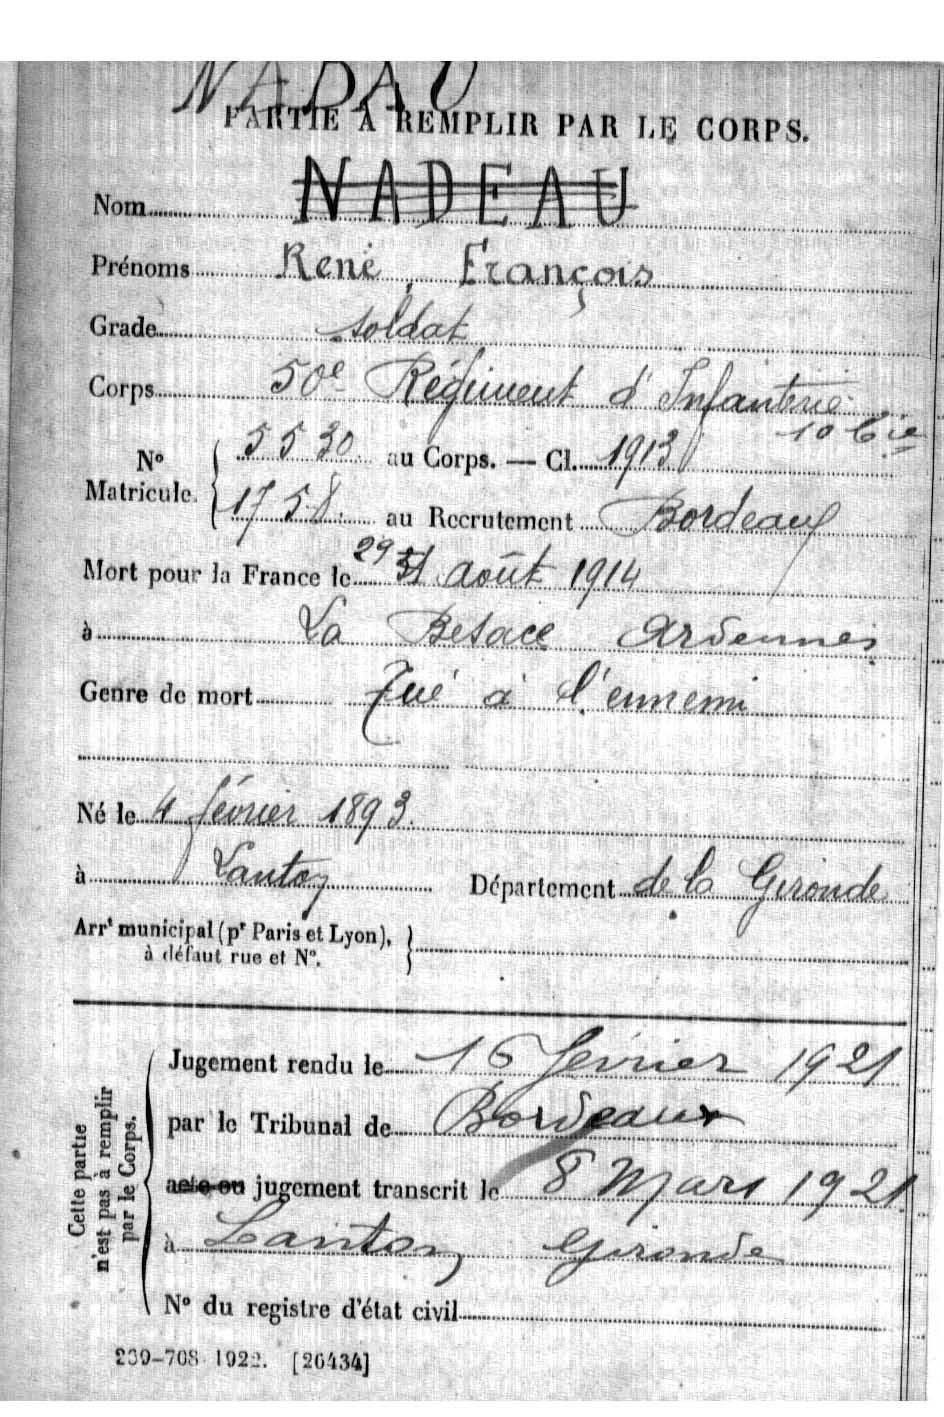 NADAU
PARTIE À REMPLIR PAR LE CORPS.
Nom NADEAU
Prénoms René, François
Grade soldat
Corps 50e Régiment d'Infanterie
10 Cie
No Matricule. 5530 au Corps. — Cl. 1913
1758 au Recrutement Bordeaux
Mort pour la France le 29 31 août 1914
à La Besace Ardennes
Genre de mort Tué à l'ennemi
Né le 4 février 1893.
à Lanton Département de la Gironde
Arrt municipal (pr Paris et Lyon),
à défaut rue et No.
Cette partie
n'est pas à remplir
par le Corps.
Jugement rendu le 16 février 1921
par le Tribunal de Bordeaux
acte ou jugement transcrit le 8 Mars 1921
à Lanton Gironde
No du registre d'état civil
239-708 1922. [26434]